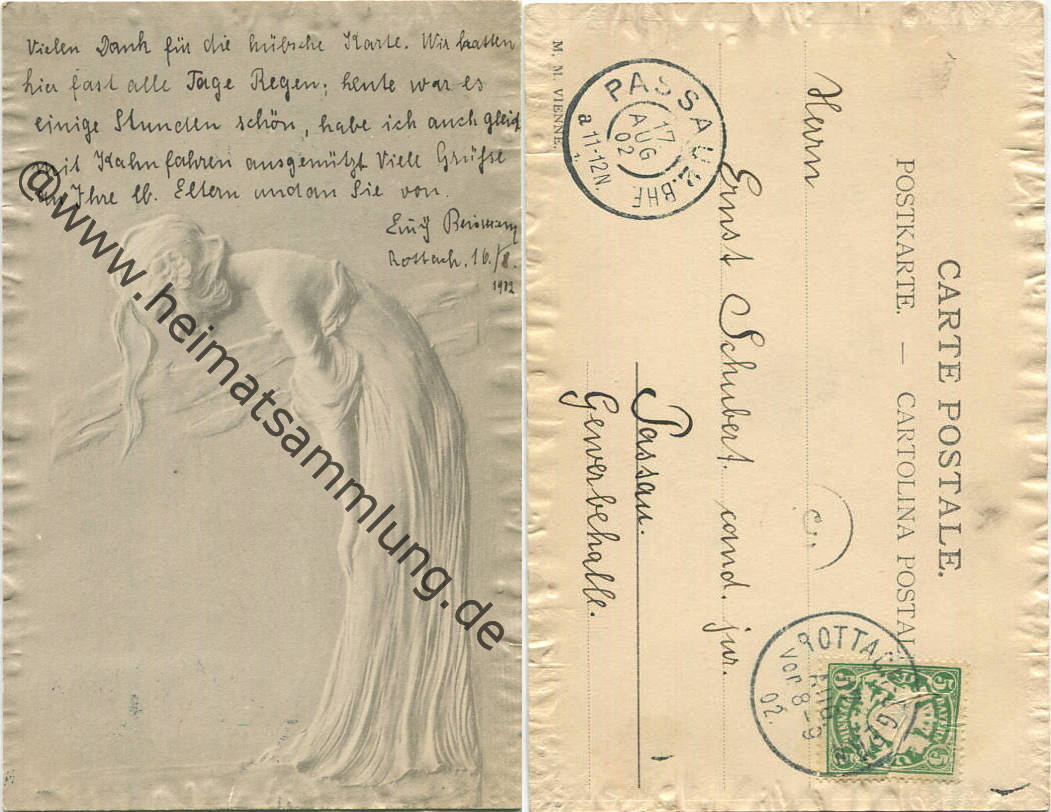 Vielen Dank für die hübsche Karte. Wir hatten
hier fast alle Tage Regen; heute war es
einige Stunden schön, habe ich auch gleich
mit Kahnfahren ausgenützt Viele Grüße
an Ihre lb. Eltern und an Sie von
Rottach, 16./8.
1902
@www.heimatsammlung.de
CARTE POSTALE.
POSTKARTE. — CARTOLINA POSTAL
Herrn
Ernst Schubert. cand. jur.
Passau.
Gewerbehalle.
M. M. VIENNE.
PASSAU
17
AUG
02
a 11-12N.
2.BHF
ROTTACH
AUG
vor 8-9
02.
5 5
BAYERN
5 5